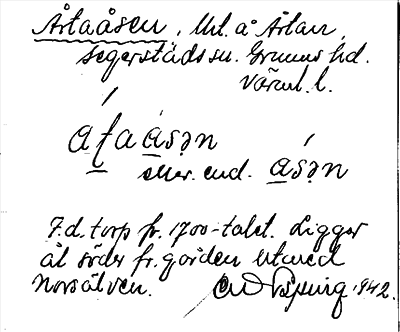 Årtaåsen, Utl. å Årtan,
Segerstads sn. Grums hd.
Värml. l.
áʃaásən
eller end. ásən
F.d. torp fr. 1700-talet. Ligger
åt söder fr. gården utmed
Norsälven. 1942.